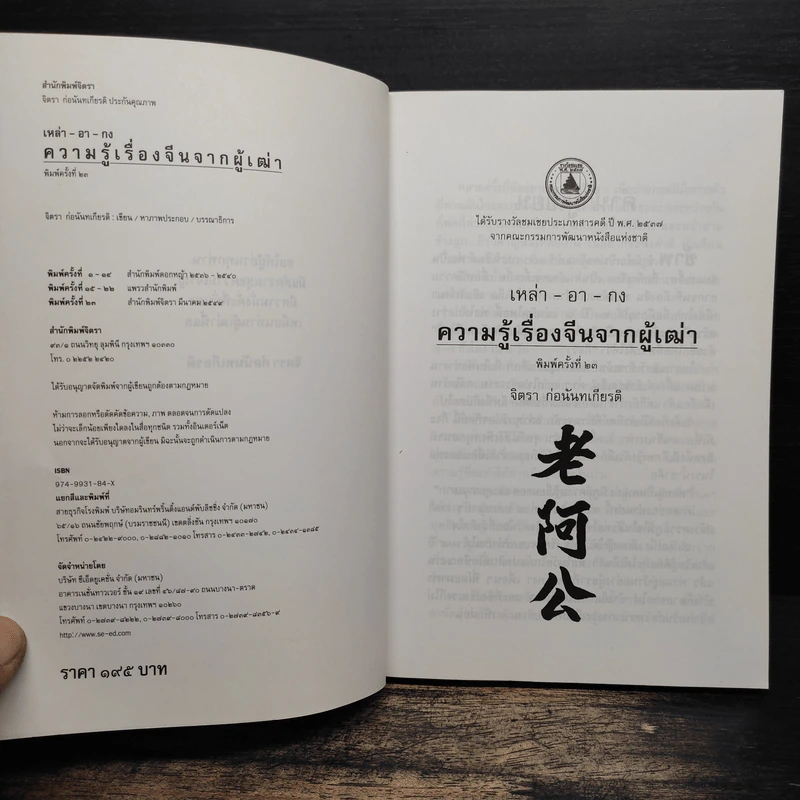 สำนักพิมพ์จิตรา
จิตรา ก่อนันทเกียรติ ประกันคุณภาพ
เหล่า – อา – กง
ความรู้เรื่องจีนจากผู้เฒ่า
พิมพ์ครั้งที่ ๒๓
จิตรา ก่อนันทเกียรติ : เขียน / หาภาพประกอบ / บรรณาธิการ
พิมพ์ครั้งที่ ๑ – ๑๔ สำนักพิมพ์ดอกหญ้า ๒๕๓๖ – ๒๕๔๐
พิมพ์ครั้งที่ ๑๕ – ๒๒ แพรวสำนักพิมพ์
พิมพ์ครั้งที่ ๒๓ สำนักพิมพ์จิตรา มีนาคม ๒๕๔๙
สำนักพิมพ์จิตรา
๙๓/๑ ถนนวิทยุ ลุมพินี กรุงเทพฯ ๑๐๓๓๐
โทร. ๐ ๒๒๕๒ ๒๔๒๐
ได้รับอนุญาตจัดพิมพ์จากผู้เขียนถูกต้องตามกฎหมาย
ห้ามการลอกหรือตัดคัดข้อความ, ภาพ ตลอดจนการดัดแปลง
ไม่ว่าจะเล็กน้อยเพียงใดลงในสื่อทุกชนิด รวมทั้งอินเตอร์เน็ต
นอกจากจะได้รับอนุญาตจากผู้เขียน มิฉะนั้นจะถูกดำเนินการตามกฎหมาย
ISBN
974-9931-84-X
แยกสีและพิมพ์ที่
สายธุรกิจโรงพิมพ์ บริษัทอมรินทร์พริ้นติ้งแอนด์พับลิชชิ่ง จำกัด (มหาชน)
๖๕/๑๖ ถนนชัยพฤกษ์ (บรมราชชนนี) เขตตลิ่งชัน กรุงเทพฯ ๑๐๑๗๐
โทรศัพท์ ๐-๒๔๒๒-๙๐๐๐, ๐-๒๘๘๒-๑๐๑๐ โทรสาร ๐-๒๔๓๓-๒๗๔๒, ๐-๒๔๓๔-๑๓๘๕
จัดจำหน่ายโดย
บริษัท ซีเอ็ดยูเคชั่น จำกัด (มหาชน)
อาคารเนชั่นทาวเวอร์ ชั้น ๑๙ เลขที่ ๔๖/๘๗-๙๐ ถนนบางนา-ตราด
แขวงบางนา เขตบางนา กรุงเทพฯ ๑๐๒๖๐
โทรศัพท์ ๐-๒๗๓๙-๘๒๒๒, ๐-๒๗๓๙-๘๐๐๐ โทรสาร ๐-๒๗๓๙-๘๓๕๖-๙
http://www.se-ed.com
ราคา ๑๙๕ บาท
ได้รับรางวัลชมเชยประเภทสารคดี ปี พ.ศ. ๒๕๓๗
จากคณะกรรมการพัฒนาหนังสือแห่งชาติ
เหล่า – อา – กง
ความรู้เรื่องจีนจากผู้เฒ่า
พิมพ์ครั้งที่ ๒๓
จิตรา ก่อนันทเกียรติ
老
阿
公